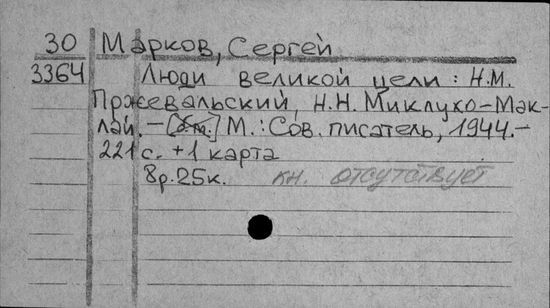 30 Марков, Сергей
3364 Люди великой цели: Н.М.
Пржевальский, Н.Н. Миклухо-Мак-
лай. – М.: Сов. писатель, 1944.–
221 с. +1 карта
8р.25к. кн. отсутствует